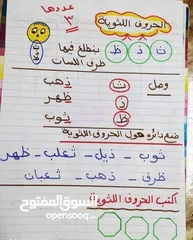 عددها
٣
الحروف اللثوية
ث ذ ظ
يطلع فيها
طرف اللسان
وصل
ث ذهب
ذ ظهر
ظ ثوب
ضع دائرة حول الحروف اللثوية
ثوب - ذيل - ثعلب - ظهر
ظرف - ذهب - ثعبان
اكتب الحروف اللثوية
السوق المفتوح
opensooq.com